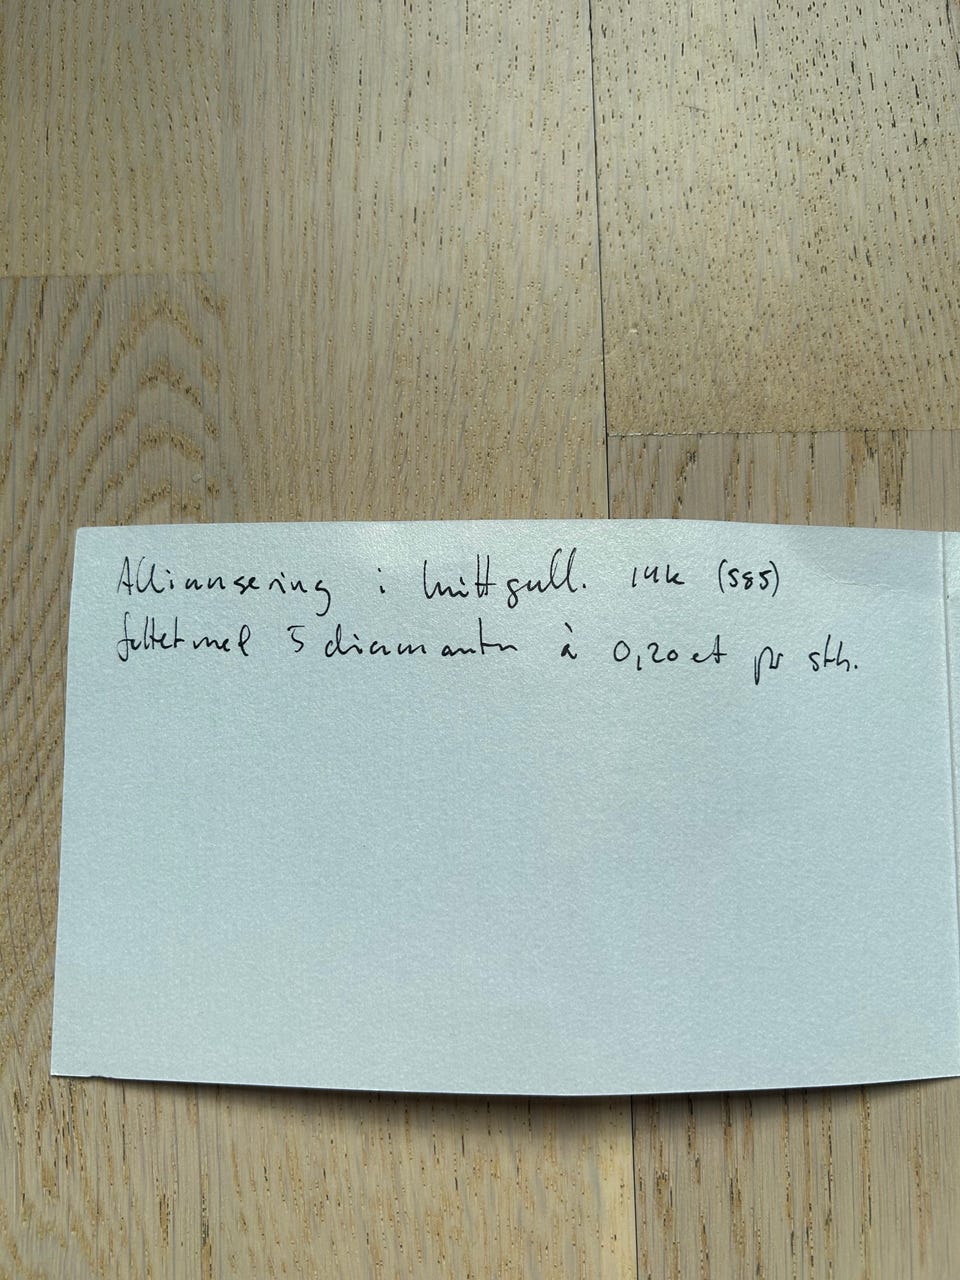 Alliansering i hvitt gull. 14k (585)
fattet med 5 diamanter à 0,20 ct pr stk.